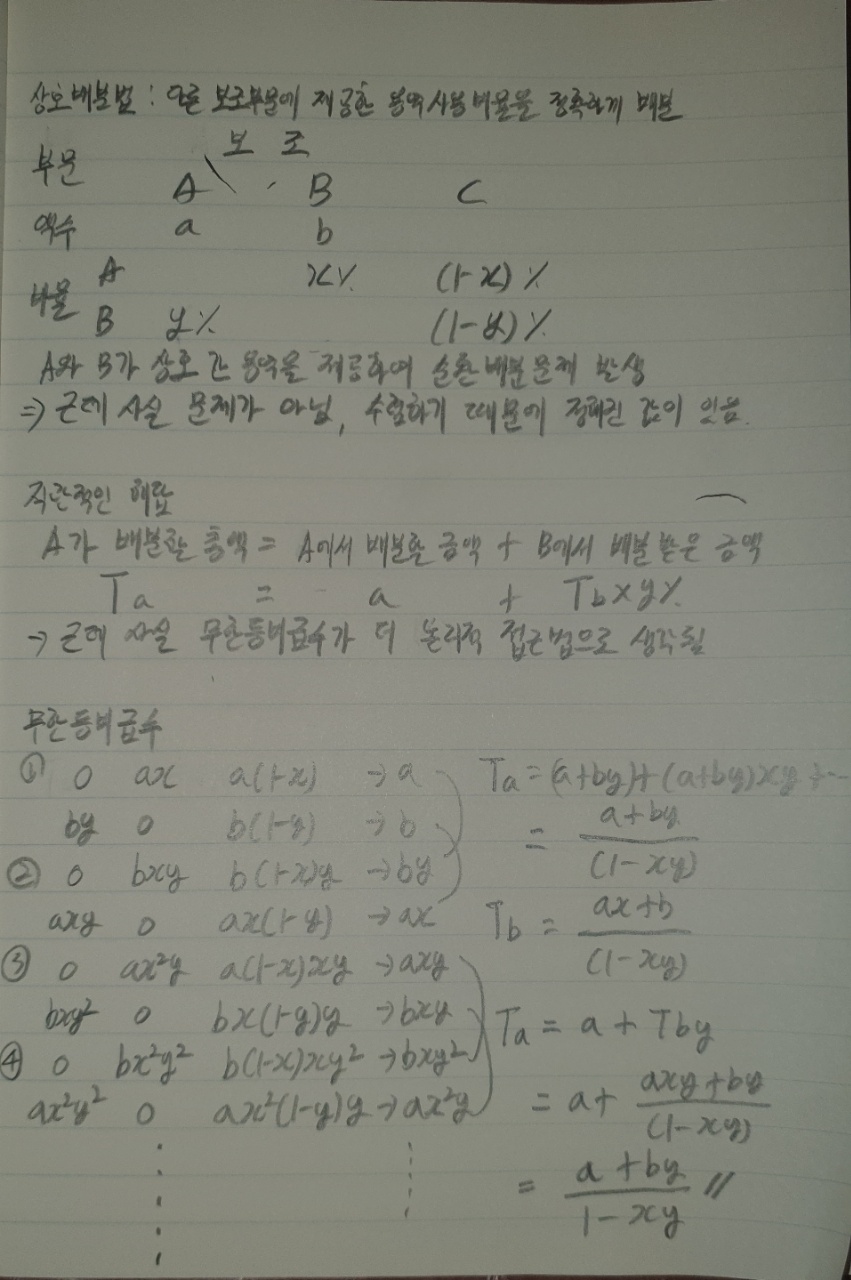 상호배분법 : 다른 보조부문에 제공한 용역사용비율을 정확하게 배분
보 조
부문 A B C
액수 a b
비율 A x% (1-x)%
B y% (1-y)%
A와 B가 상호 간 용역을 제공하여 순환배분문제 발생
⇒ 근데 사실 문제가 아님, 수렴하기 때문에 정해진 값이 있음.
직관적인 해답
A가 배분할 총액 = A에서 배분할 금액 + B에서 배분 받은 금액
Ta = a + Tb×y%
→ 근데 사실 무한등비급수가 더 논리적 접근법으로 생각됨
무한등비급수
① 0 ax a(1-x) → a Ta = (a+by)+(a+by)xy+…
by 0 b(1-y) → b = (a+by)/(1-xy)
② 0 bxy b(1-x)y → by
axy 0 ax(1-y) → ax Tb = (ax+b)/(1-xy)
③ 0 ax²y a(1-x)xy → axy
bxy² 0 bx(1-y)y → bxy Ta = a + Tby
④ 0 bx²y² b(1-x)xy² → bxy²
ax²y² 0 ax²(1-y)y → ax²y = a + (axy+by)/(1-xy)
= (a+by)/(1-xy) //